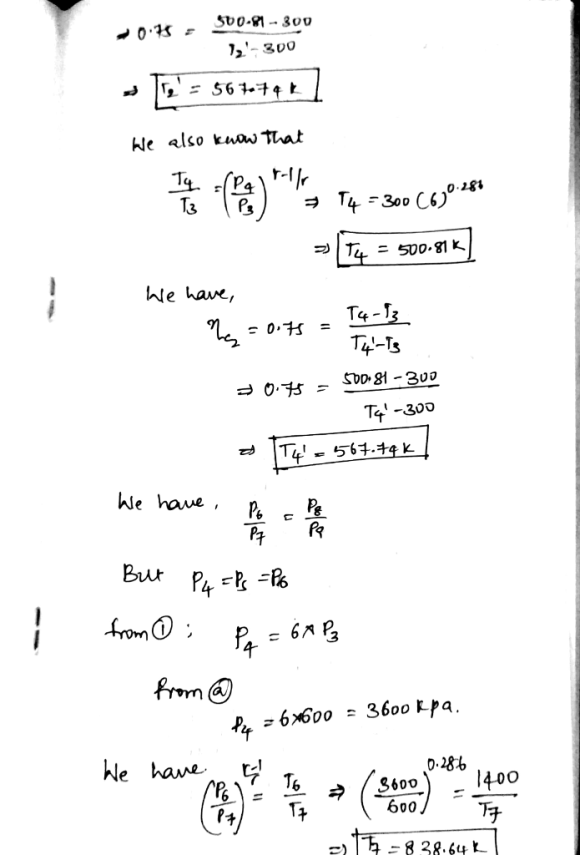 ⇒ 0.75 = (500.81 - 300) / (T2' - 300)
⇒ T2' = 567.74 K
We also know that
T4/T3 = (P4/P3)^(r-1/r) ⇒ T4 = 300 (6)^0.286
⇒ T4 = 500.81 K
We have,
ηc2 = 0.75 = (T4 - T3) / (T4' - T3)
⇒ 0.75 = (500.81 - 300) / (T4' - 300)
⇒ T4' = 567.74 K
We have, P6/P7 = P8/P9
But P4 = P5 = P6
from ① ; P4 = 6 × P3
from ②
P4 = 6×600 = 3600 kpa.
We have. (P6/P7)^(r-1/r) = T6/T7 ⇒ (3600/600)^0.286 = 1400/T7
⇒ T7 = 838.64 K